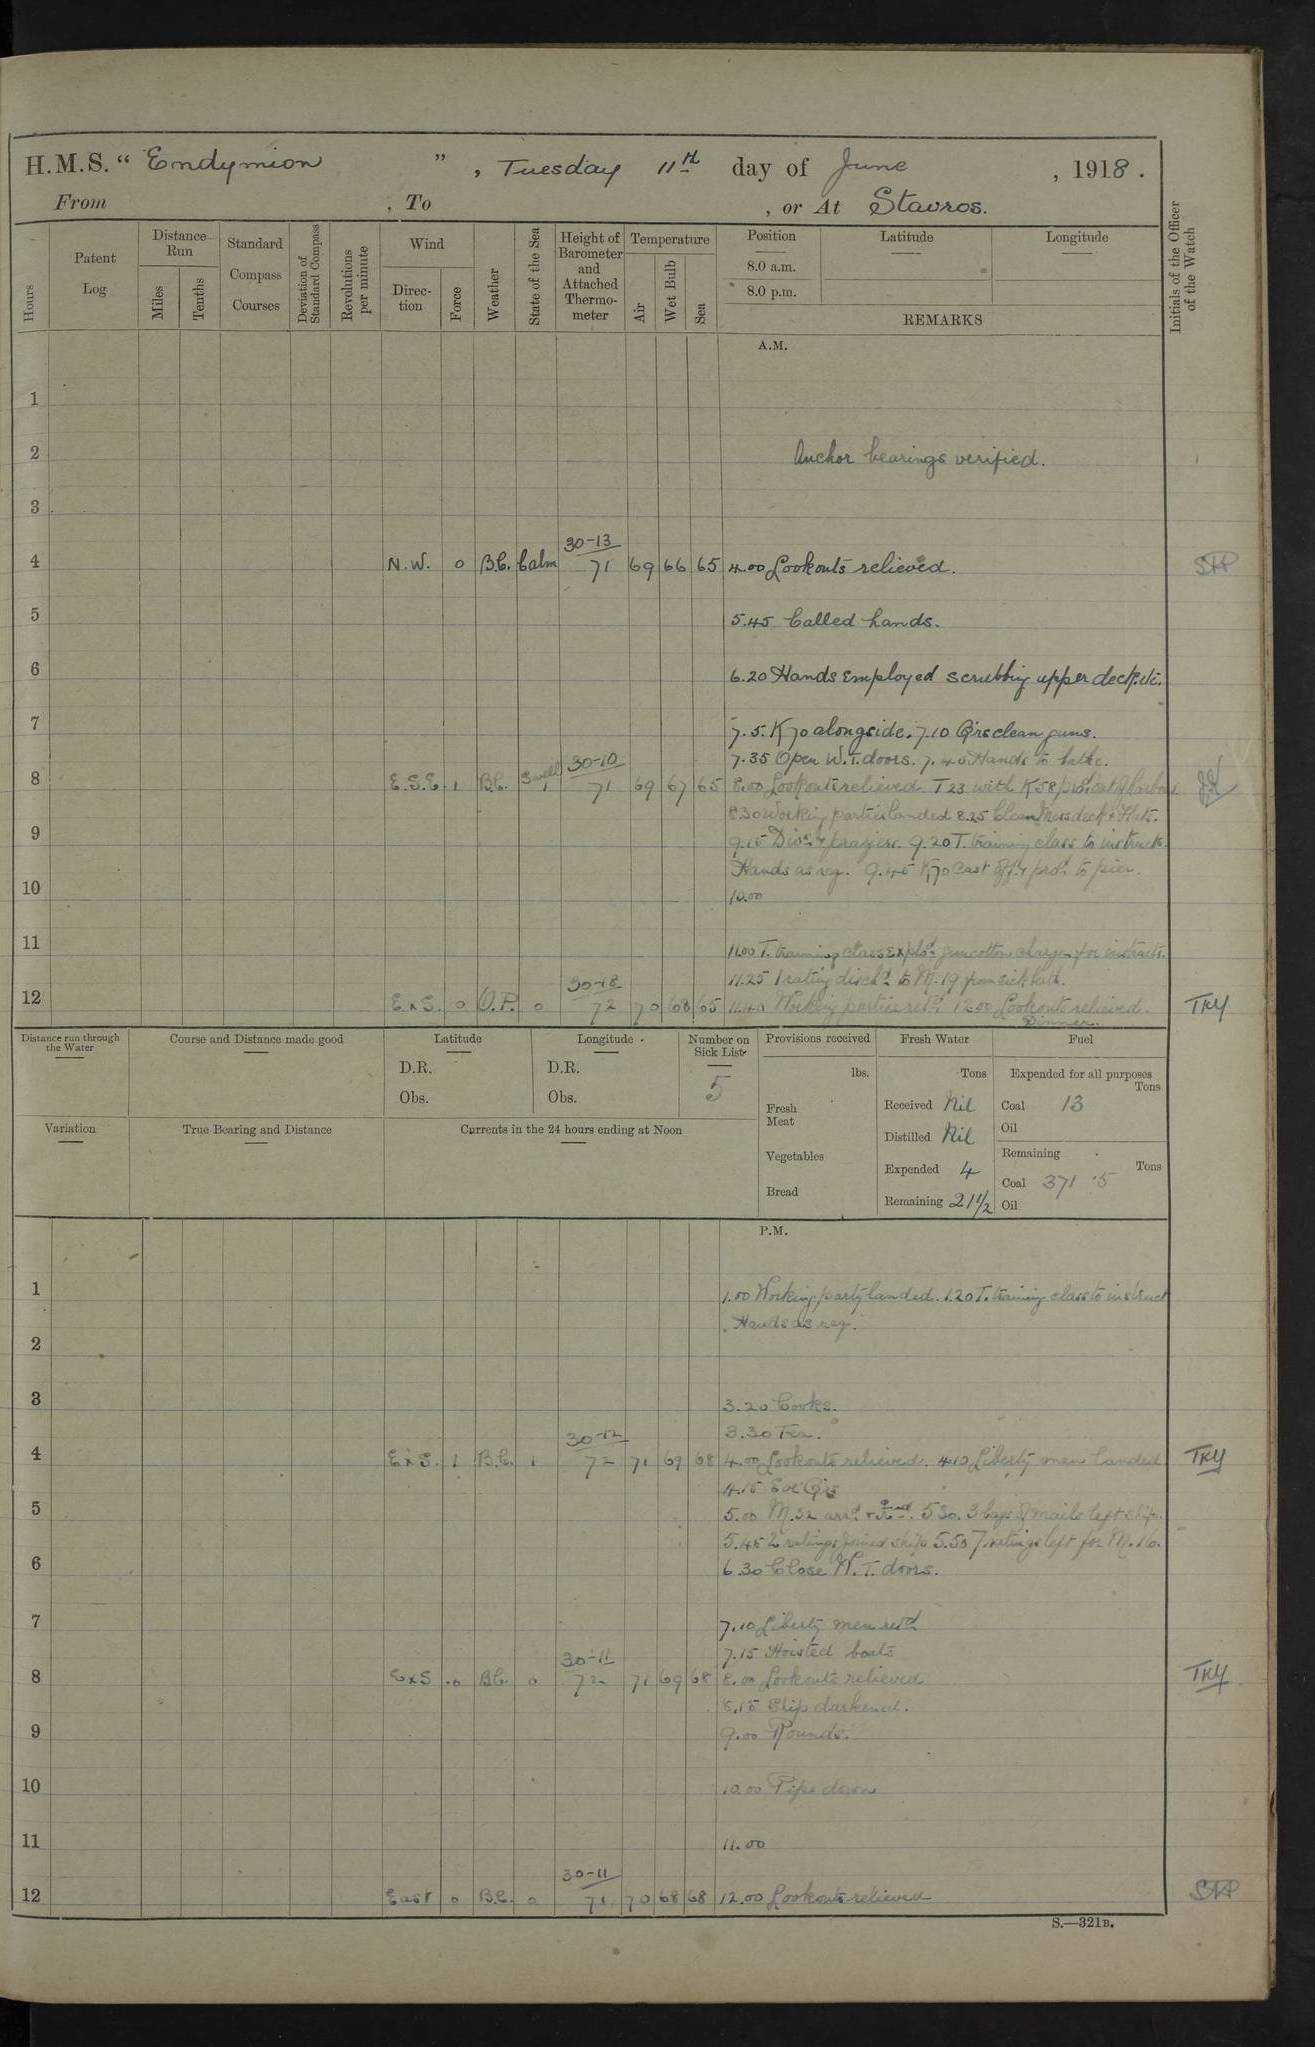 H.M.S. “ Endymion ”, Tuesday 11th day of June, 1918.
From , To , or At Stavros.
Hours
Patent Log
Distance Run
Miles
Tenths
Standard Compass Courses
Deviation of Standard Compass
Revolutions per minute
Wind
Direction
Force
Weather
State of the Sea
Height of Barometer and Attached Thermometer
Temperature
Air
Wet Bulb
Sea
Position
8.0 a.m.
8.0 p.m.
Latitude
Longitude
REMARKS
Initials of the Officer of the Watch
A.M.
1
2 Anchor bearings verified.
3
30-13
4 N.W. 0 B.C. Calm 71 69 66 65 4.00 Lookouts relieved.
5 5.45 Called hands.
6 6.20 Hands employed scrubbing upper deck. etc.
7 7.5. K70 alongside. 7.10 Qrs clean guns.
30-10 7.35 Open W.T. doors. 7.40 Hands to bathe.
8 E.S.E. 1 B.C. Swell 1 71 69 67 65 8.00 Lookouts relieved T23 with K58 out of harbour
8.30 Working parties landed 8.25 Clean Messdeck & Flats.
9 9.15 Divs & prayers. 9.20 T. training class to instruct.
Hands as req. 9.45 K70 cast off & procd to pier.
10 10.00
11 11.00 T. training class explod guncotton charges for instructs.
30-18 11.25 1 rating dischd to M.19 from sick berth.
12 ExS. 0 O.P. 0 72 70 68 65 11.40 Working parties retd 12.00 Lookouts relieved. TKY
Dinner.
Distance run through the Water
Course and Distance made good
Latitude
D.R.
Obs.
Longitude
D.R.
Obs.
Number on Sick List
5
Provisions received
lbs.
Fresh Meat
Vegetables
Bread
Fresh Water
Tons
Received Nil
Distilled Nil
Expended 4
Remaining 21 1/2
Fuel
Expended for all purposes
Tons
Coal 13
Oil
Remaining
Tons
Coal 371.5
Oil
Variation
True Bearing and Distance
Currents in the 24 hours ending at Noon
P.M.
1 1.00 Working party landed. 1.20 T. training class to instruct
Hands as req.
2
3 3.20 Cooks.
30-12 3.30 Tea.
4 ExS. 1 B.C. 1 72 71 69 68 4.00 Lookouts relieved. 4.10 Liberty men landed TKY
4.15 Eve Qrs
5 5.00 M.32 arrd 5.30. 3 bags of mails left ship.
5.45 2 ratings joined ship 5.50 7 ratings left for M.16.
6 6.30 Close W.T. doors.
7 7.10 Liberty men retd
30-11 7.15 Hoisted boats
8 ExS .0 B.C. 0 72 71 69 68 8.00 Lookouts relieved TKY
8.15 Ship darkened.
9 9.00 Rounds.
10 10.00 Pipe down
11 11.00
30-11
12 East 0 B.C. 0 71 70 68 68 12.00 Lookouts relieved
S.—321B.